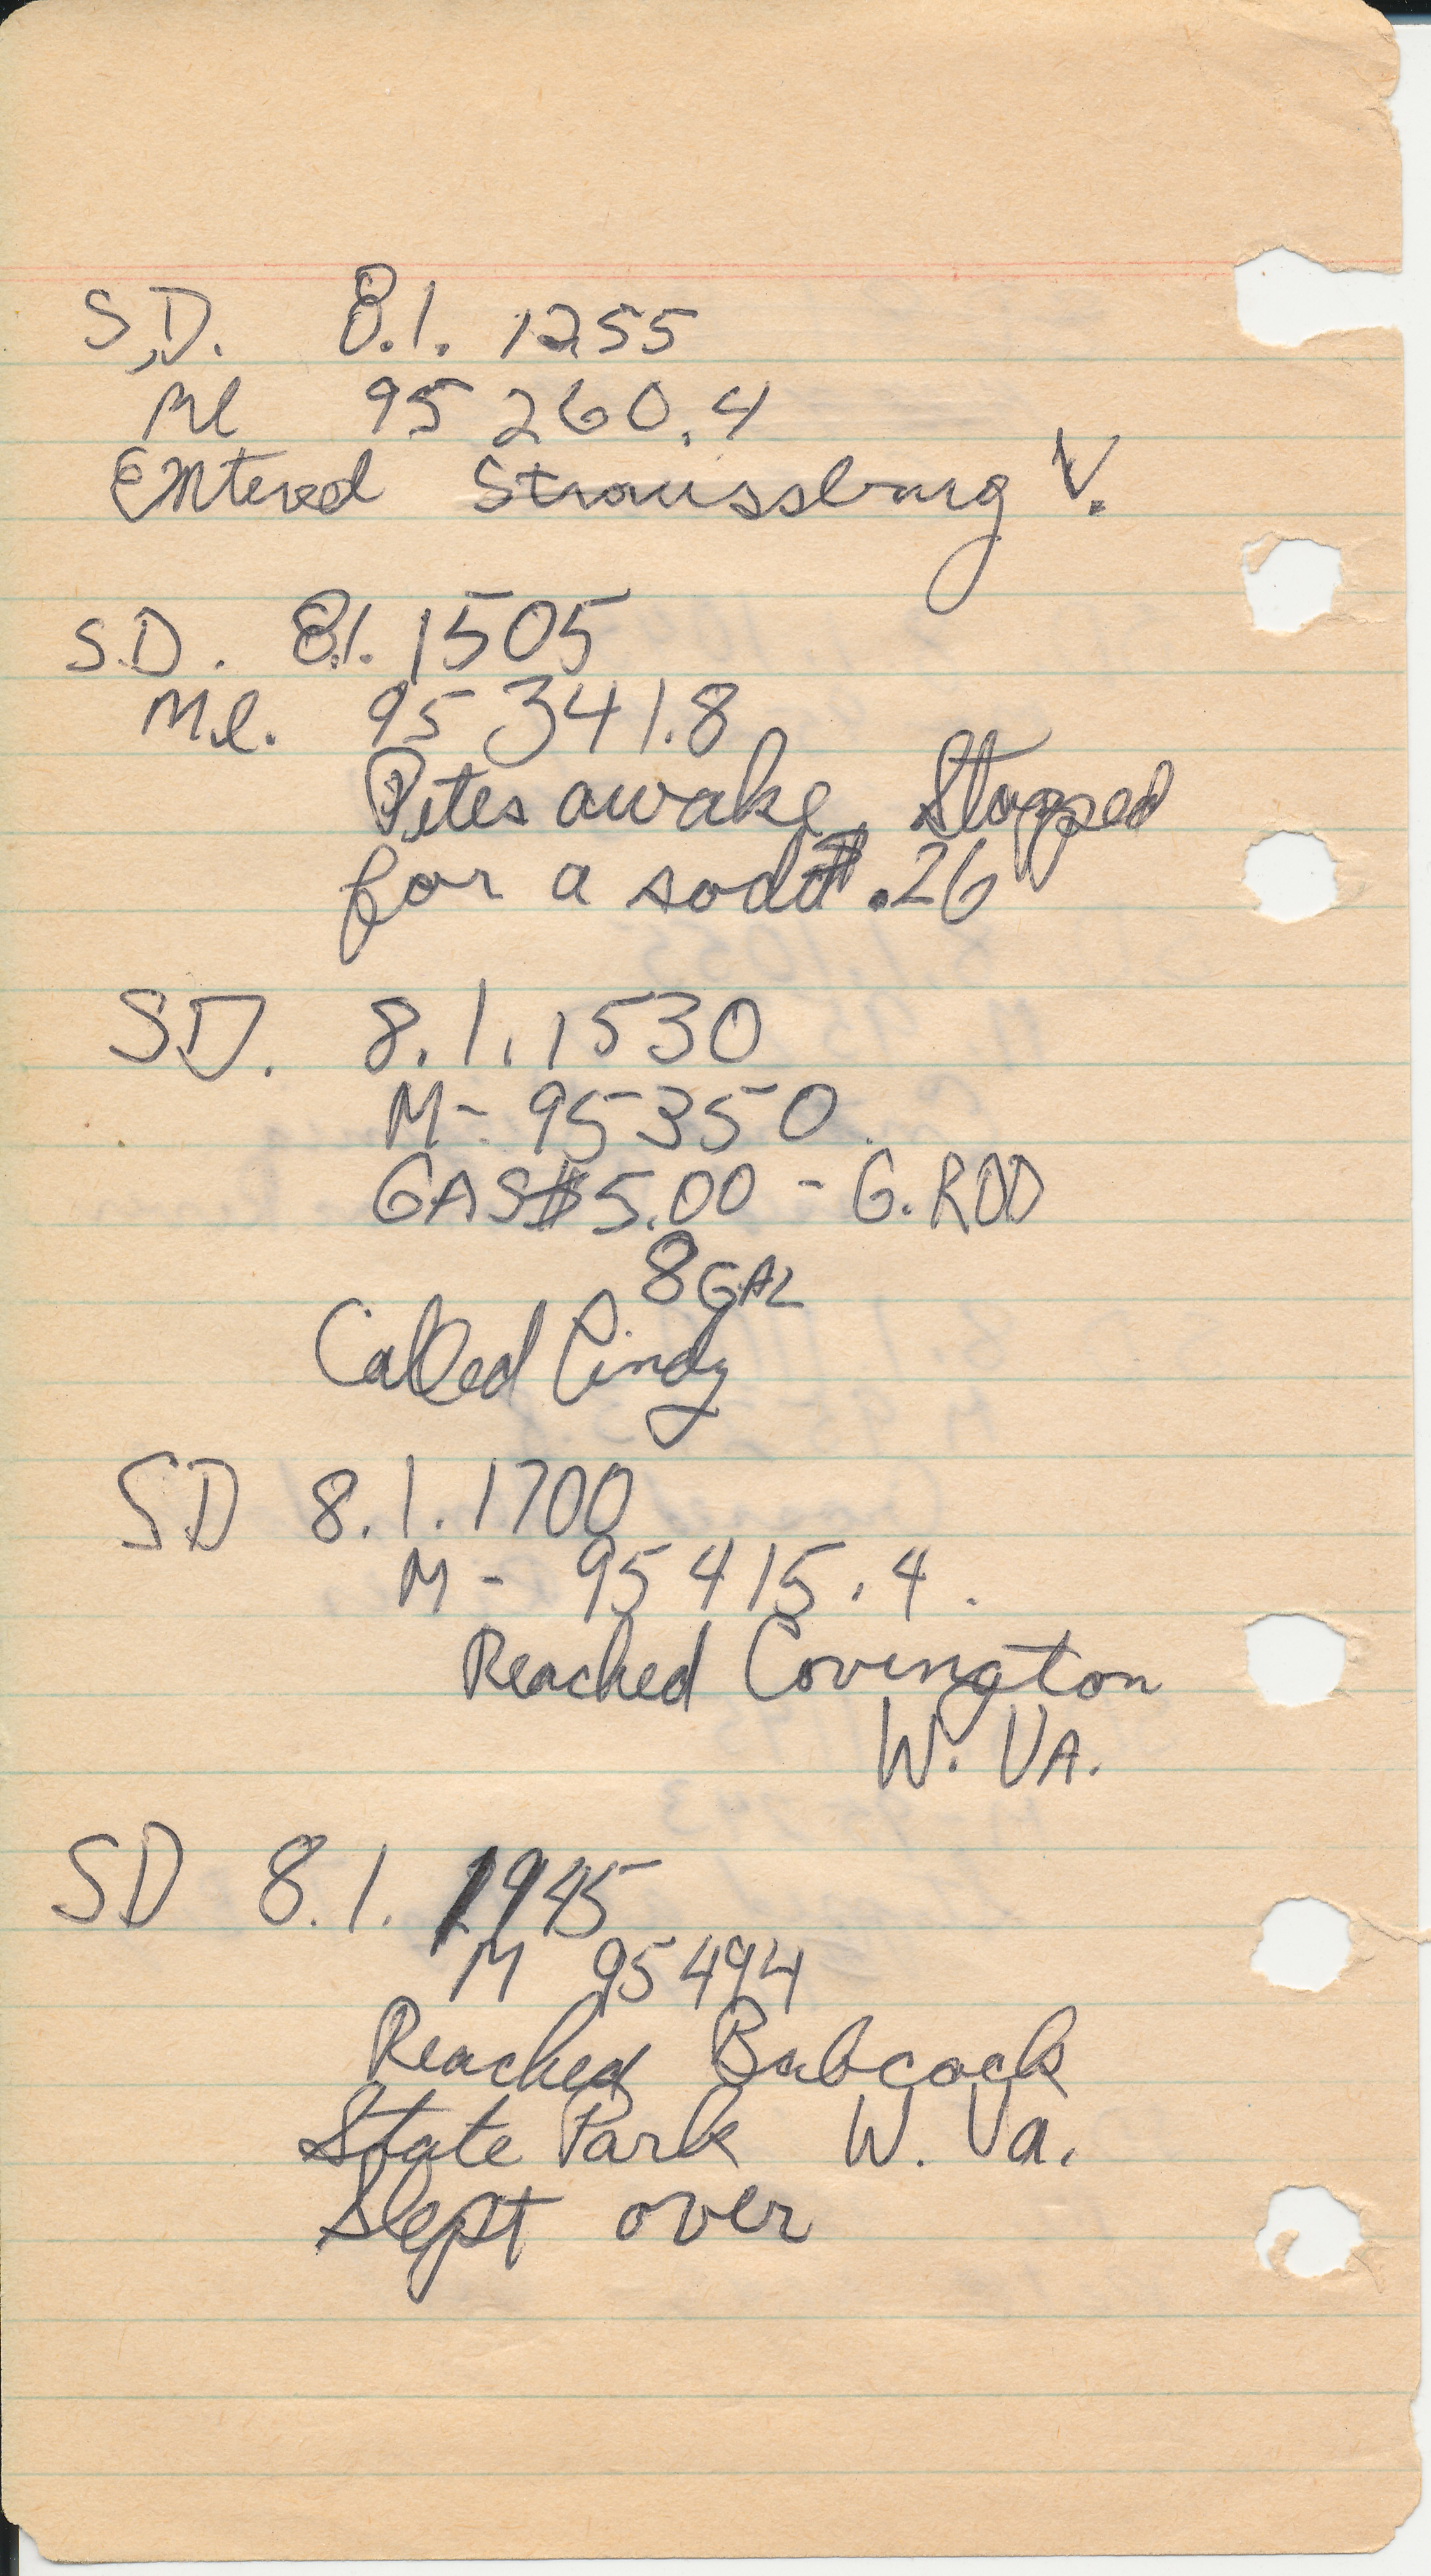 S.D. 8.1. 1255
Ml 95 260.4
Entered Straussburg V.
S.D. 8.1. 1505
Ml. 95 341.8
Petes awake. Stopped
for a soda $.26
SD. 8.1.1530
M- 95350.
GAS $5.00 - G. ROD
8 GAL
Called Cindy
SD 8.1.1700
M- 95 415.4.
Reached Covington
W. VA.
SD 8.1. 1945
M 95494
Reached Babcock
State Park W. Va.
Slept over